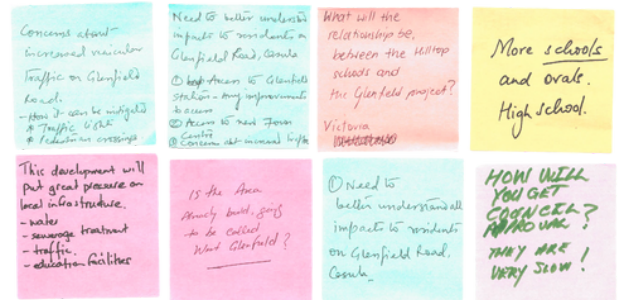 Concerns about
increased vehicular
Traffic on Glenfield
Road.
- How it can be mitigated
* Traffic lights
* Pedestrian crossings
Need to better understand
impacts to residents on
Glenfield Road, Casula
① Access to Glenfield
station - any improvements
to access
② Access to new Town
Centre
③ Concerns abt increased traffic
What will the
relationship be,
between the Hilltop
schools and
the Glenfield project?
Victoria
More schools
and ovals.
High school.
This development will
put great pressure on
local infrastructure.
- water
- sewerage treatment
- traffic.
- education facilities
Is the Area
Already build, going
to be called
West Glenfield?
① Need to
better understand all
impacts to residents
on Glenfield Road,
Casula
HOW WILL
YOU GET
COUNCIL?
APPROVAL!
THEY ARE
VERY SLOW!